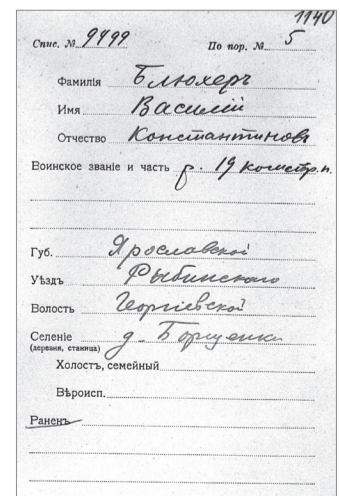 1140
Спис. № 9499 По пор. № 5
Фамилія Блюхеръ
Имя Василій
Отчество Константиновъ
Воинское званіе и часть р. 19 Костр. п.
Губ. Ярославской
Уѣздъ Рыбинскаго
Волость Георгіевской
Селеніе д. Борщенки
(деревня, станица)
Холостъ, семейный
Вѣроисп.
Раненъ